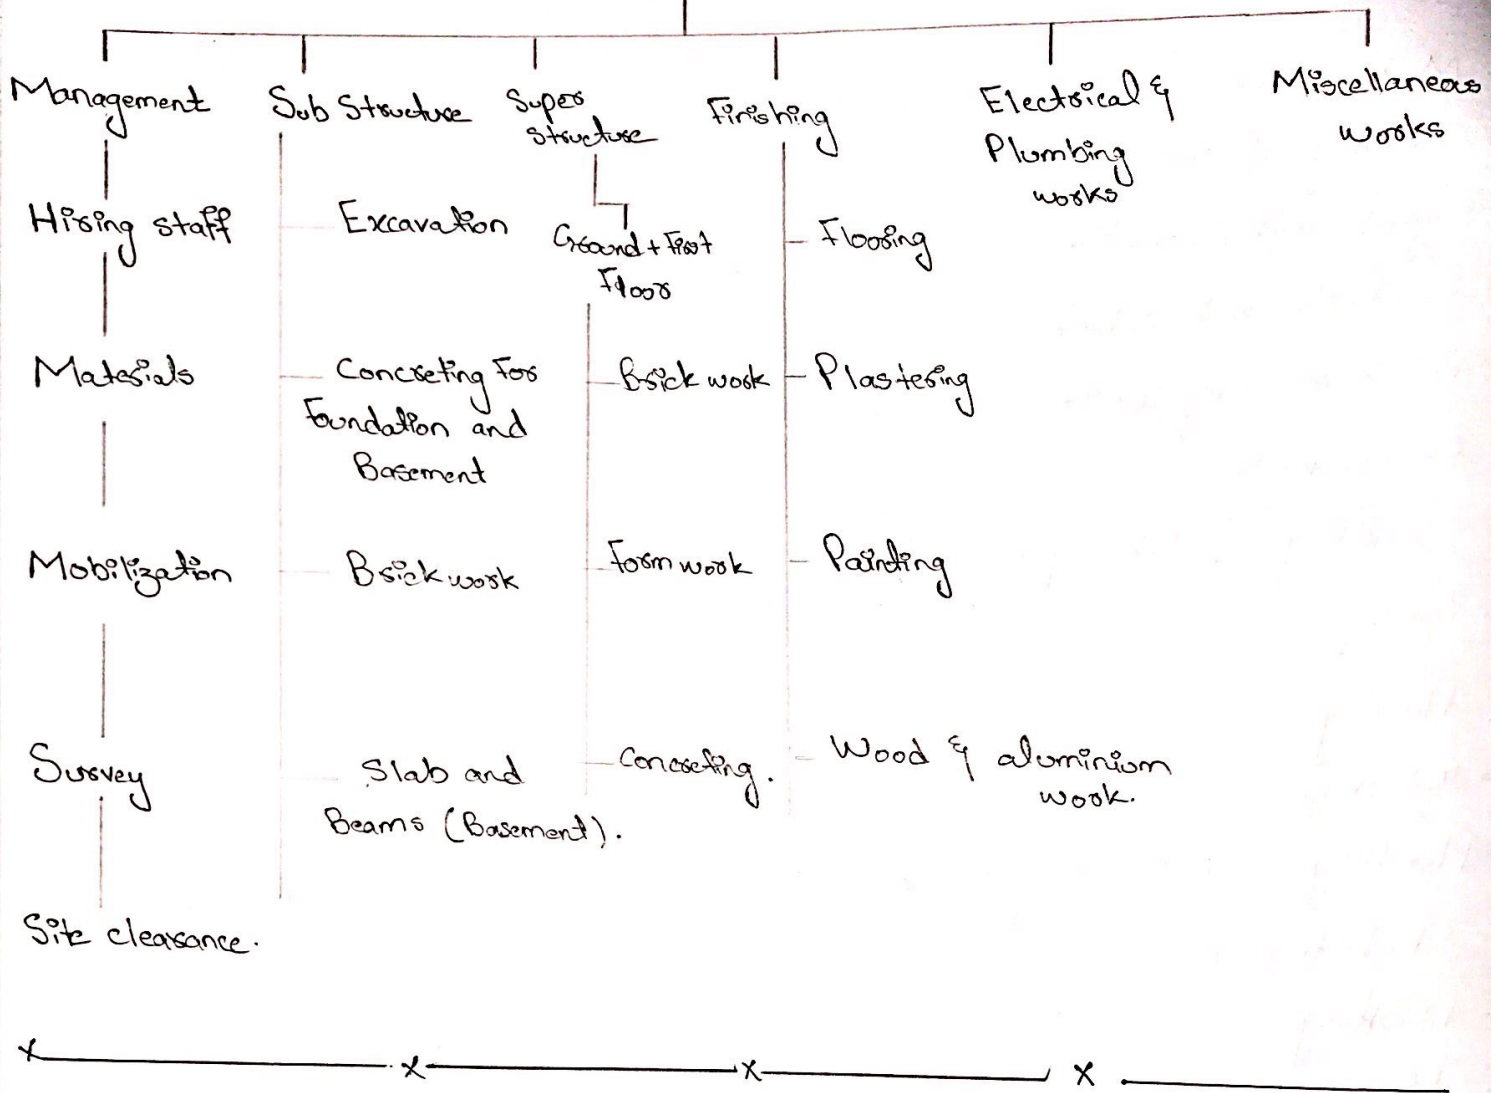 Management
Hiring staff
Materials
Mobilization
Survey
Site clearance.
Sub Structure
Excavation
Concreting For
Foundation and
Basement
Brick work
Slab and
Beams (Basement).
Super
Structure
Ground + First
Floor
Brick work
Form work
Concreting.
Finishing
Flooring
Plastering
Painting
Wood & aluminium
work.
Electrical &
Plumbing
works
Miscellaneous
works
x x x x